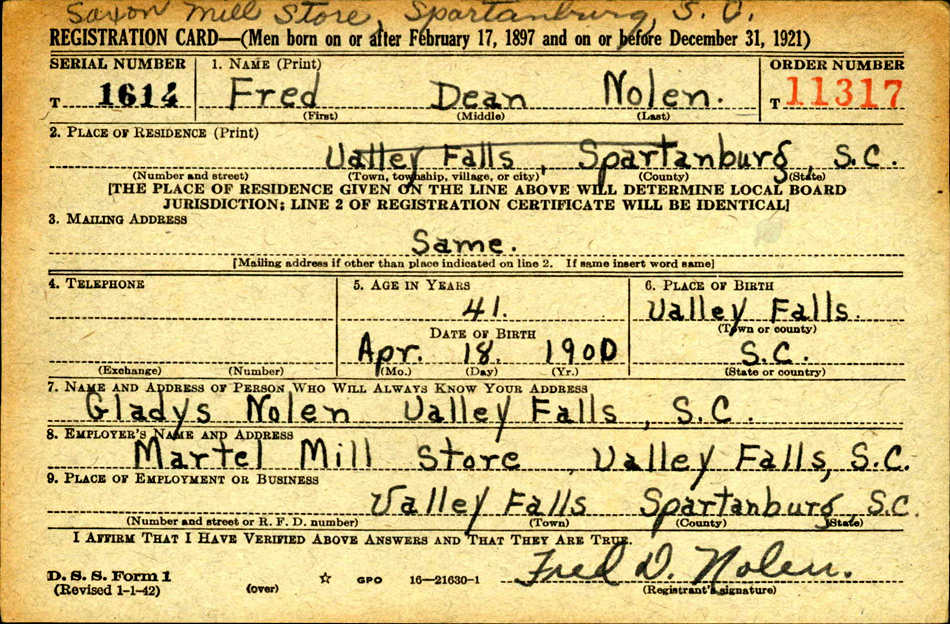 Saxon Mill Store, Spartanburg, S. C.
REGISTRATION CARD—(Men born on or after February 17, 1897 and on or before December 31, 1921)
SERIAL NUMBER 1. NAME (Print) ORDER NUMBER
T 1614 Fred Dean Nolen. T 11317
(First) (Middle) (Last)
2. PLACE OF RESIDENCE (Print)
Valley Falls, Spartanburg, S.C.
(Number and street) (Town, township, village, or city) (County) (State)
[THE PLACE OF RESIDENCE GIVEN ON THE LINE ABOVE WILL DETERMINE LOCAL BOARD
JURISDICTION; LINE 2 OF REGISTRATION CERTIFICATE WILL BE IDENTICAL]
3. MAILING ADDRESS
Same.
[Mailing address if other than place indicated on line 2. If same insert word same]
4. TELEPHONE 5. AGE IN YEARS 6. PLACE OF BIRTH
41. Valley Falls.
DATE OF BIRTH (Town or county)
Apr. 18. 1900 S.C.
(Exchange) (Number) (Mo.) (Day) (Yr.) (State or country)
7. NAME AND ADDRESS OF PERSON WHO WILL ALWAYS KNOW YOUR ADDRESS
Gladys Nolen Valley Falls, S.C.
8. EMPLOYER'S NAME AND ADDRESS
Martel Mill Store, Valley Falls, S.C.
9. PLACE OF EMPLOYMENT OR BUSINESS
Valley Falls Spartanburg, S.C.
(Number and street or R. F. D. number) (Town) (County) (State)
I AFFIRM THAT I HAVE VERIFIED ABOVE ANSWERS AND THAT THEY ARE TRUE.
Fred D. Nolen.
D. S. S. Form 1
(Revised 1-1-42) (over) ☆ GPO 16—21630-1 (Registrant's signature)